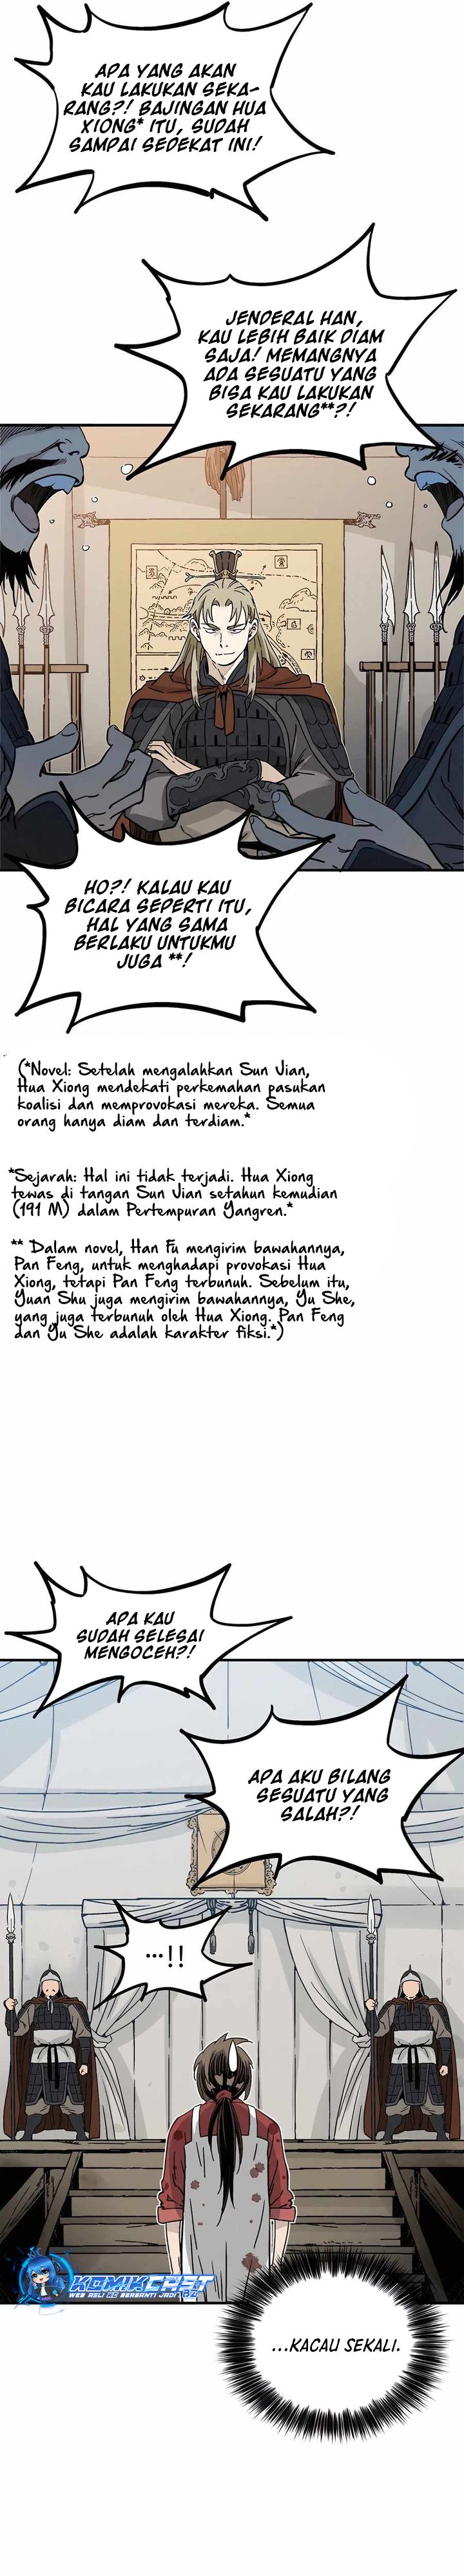 APA YANG AKAN
KAU LAKUKAN SEKA-
RANG?! BAJINGAN HUA
XIONG* ITU, SUDAH
SAMPAI SEDEKAT INI!
JENDERAL HAN,
KAU LEBIH BAIK DIAM
SAJA! MEMANGNYA
ADA SESUATU YANG
BISA KAU LAKUKAN
SEKARANG**?!
HO?! KALAU KAU
BICARA SEPERTI ITU,
HAL YANG SAMA
BERLAKU UNTUKMU
JUGA **!
(*Novel: Setelah mengalahkan Sun Jian,
Hua Xiong mendekati perkemahan pasukan
koalisi dan memprovokasi mereka. Semua
orang hanya diam dan terdiam.*
*Sejarah: Hal ini tidak terjadi. Hua Xiong
tewas di tangan Sun Jian setahun kemudian
(191 M) dalam Pertempuran Yangren.*
** Dalam novel, Han Fu mengirim bawahannya,
Pan Feng, untuk menghadapi provokasi Hua
Xiong, tetapi Pan Feng terbunuh. Sebelum itu,
Yuan Shu juga mengirim bawahannya, Yu She,
yang juga terbunuh oleh Hua Xiong. Pan Feng
dan Yu She adalah karakter fiksi.*)
APA KAU
SUDAH SELESAI
MENGOCEH?!
APA AKU BILANG
SESUATU YANG
SALAH?!
...!!
KOMIKCAST
WEB ASLI KC BERGANTI JADI BZ
...KACAU SEKALI.